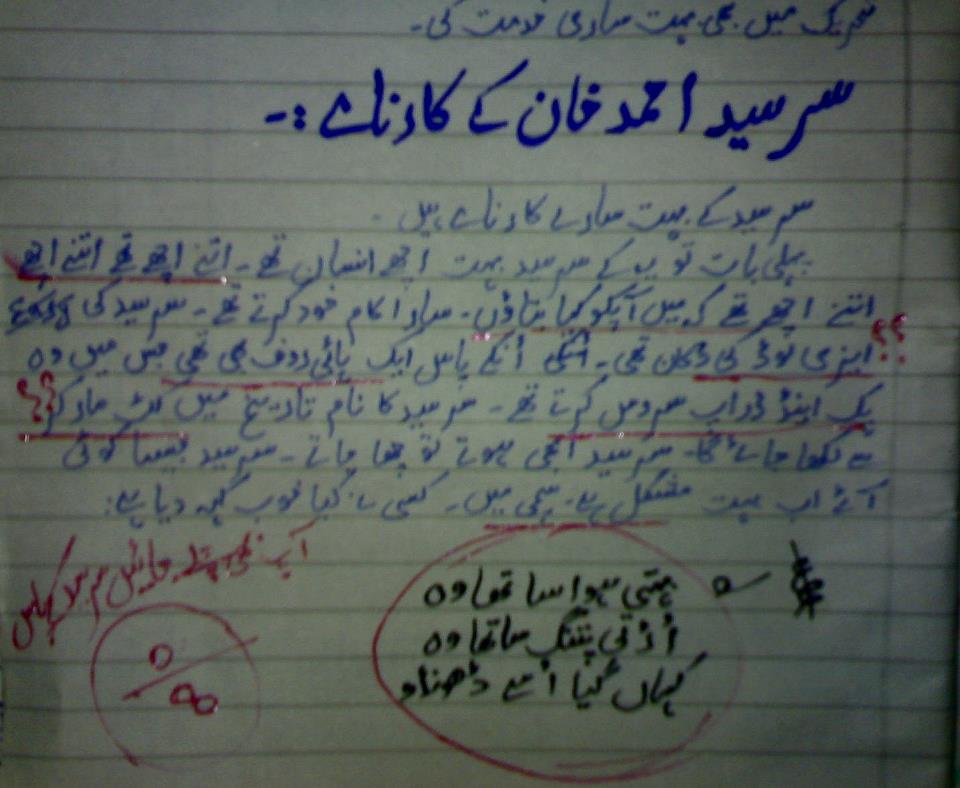 تحریک میں بھی بہت ساری خدمت کی۔
سر سید احمد خان کے کارنامے :-
سر سید کے بہت سارے کارنامے ہیں۔
پہلی بات تو یہ کے سر سید بہت اچھے انسان تھے۔ اتنے اچھے تھے اتنے اچھے
اتنے اچھے تھے کہ میں آپکو کیا بتاؤں۔ سارا کام خود کرتے تھے۔ سر سید کی
ایزی لوڈ کی دکان تھی۔ انکے پاس ایک ہائی روف بھی تھی جس میں وہ ؟؟
پک اینڈ ڈراپ سروس کرتے تھے۔ سر سید کا نام تاریخ میں کٹ مار کر ؟؟
سے لکھا جائے گا۔ سر سید ابھی ہوتے تو چھا جاتے۔ سر سید جیسا کوئی
آئے اب بہت مشکل ہے۔ سچی میں۔ کسی نے کیا خوب کہہ دیا ہے:
آپ بھی چلے جائیں سر سید کے پاس
بہتی ہوا سا تھا وہ
اڑتی پتنگ سا تھا وہ
کہاں گیا اسے ڈھونڈو
0/00